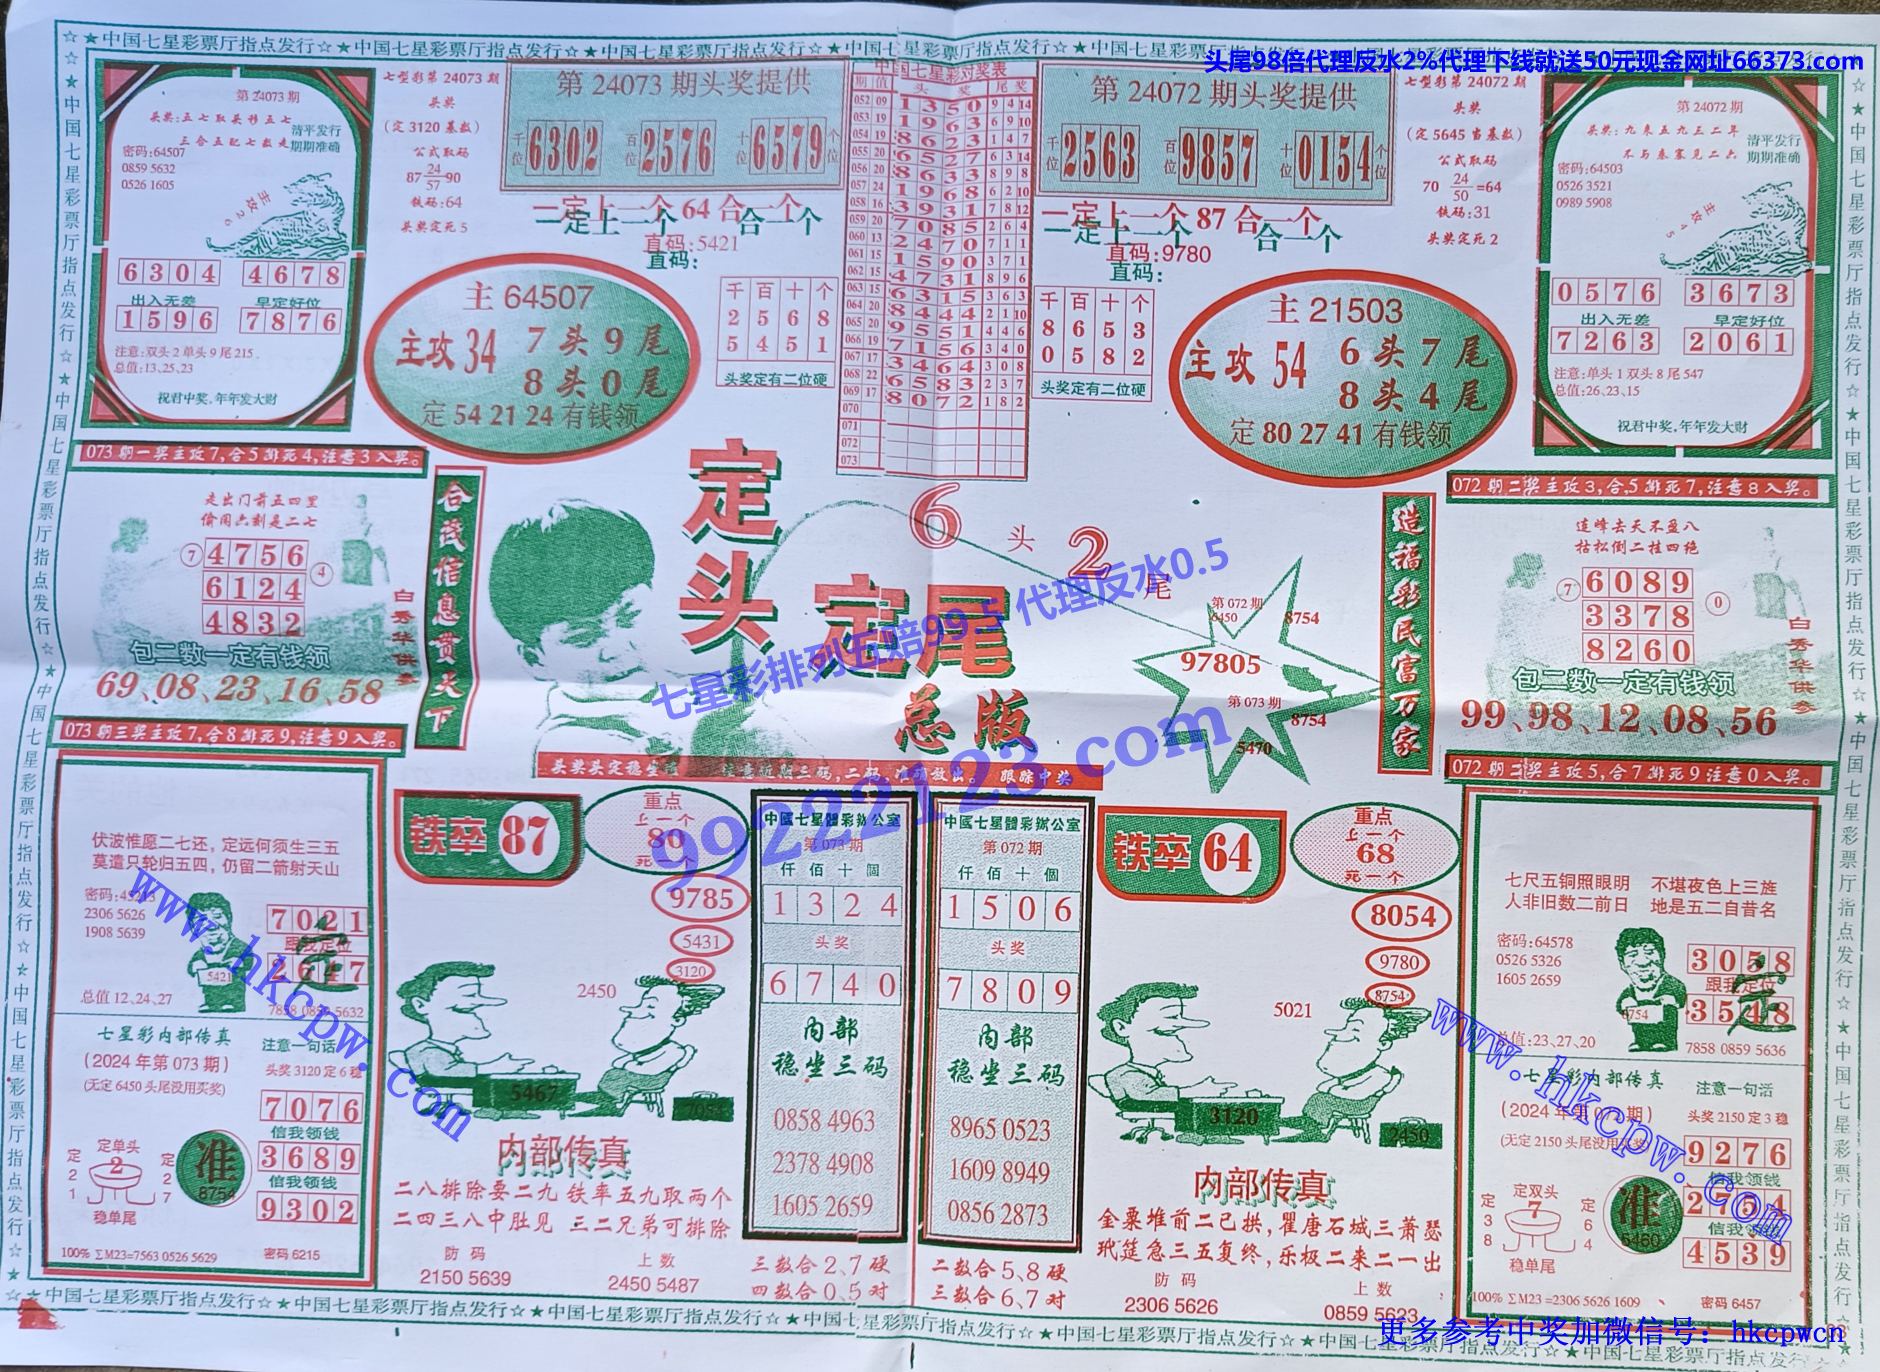 ☆★中国七星彩票厅指点发行☆★中国七星彩票厅指点发行☆★中国七星彩票厅指点发行☆★中国七星彩票厅指点发行
头尾98倍代理反水2%代理下线就送50元现金网址66373.com
第24073期
头奖:五七取头移五七
三合五配七数走
清平发行
期期准确
密码:64507
0859 5632
0526 1605
主攻26
6304 4678
出入无差 早定好位
1596 7876
注意:双头2单头9尾215.
总值:13,25,23
祝君中奖,年年发大财
七型彩第24073期
头奖
(定3120基数)
公式取码
87 24/57 90
铁码:64
头奖定死5
第24073期头奖提供
千位 6302 百位 2576 十位 6579 个位
一定上一个64合一个
直码:5421
直码:
主64507
主攻34
7头9尾
8头0尾
定 54 21 24 有钱领
千百十个
2568
5451
头奖定有二位硬
中国七星彩对奖表
期 值 头奖 尾奖
052 09 1350 9 4 14
053 19 1963 6 9 10
054 19 8623 1 4 7
055 20 6527 6 3 14
056 20 8633 8 9 8
057 24 1968 6 2 10
058 16 3931 7 8 12
059 20 7085 2 6 4
060 13 2470 7 1 1
061 15 1590 3 7 1
062 15 4731 8 9 6
063 15 6315 3 6 3
064 20 8444 2 1 10
065 20 9551 4 4 6
066 19 7156 3 4 0
067 17 3464 3 0 8
068 22 6583 2 3 7
069 17 8072 1 8 2
070
071
072
073
第24072期头奖提供
千位 2563 百位 9857 十位 0154 个位
一定上一个87合一个
直码:9780
直码:
千百十个
8653
0582
头奖定有二位硬
主21503
主攻54
6头7尾
8头4尾
定 80 27 41 有钱领
七型彩第24072期
头奖
(定5645当基数)
公式取码
70 24/50 =64
铁码:31
头奖定死2
第24072期
头奖:九来五九三二年
不与秦塞见二六
清平发行
期期准确
密码:64503
0526 3521
0989 5908
主攻45
0576 3673
出入无差 早定好位
7263 2061
注意:单头1双头8尾547
总值:26,23,15
祝君中奖,年年发大财
073期一奖主攻7,合5排死4,注意3入奖。
走出门前五四里
偷闲六割是二七
⑦ 4756
6124 ④
4832
包二数一定有钱领
69、08、23、16、58
白秀华供参
合筏信息贯天下
定头
定尾
总版
6头2尾
第072期
6450 8754
97805
第073期
8754
5470
造福彩民富万家
072期二奖主攻3,合5排死7,注意8入奖。
连峰去天不盈八
枯松倒二挂四绝
⑦ 6089
3378 ⓪
8260
包二数一定有钱领
99、98、12、08、56
白秀华供参
七星彩排列五赔99.5 代理反水0.5
99222123.com
073期三奖主攻7,合8排死9,注意9入奖。
伏波惟愿二七还,定远何须生三五
莫遣只轮归五四,仍留二箭射天山
2306 5626
1908 5639
5421
7021
跟我定位
2647
总值12、24、27
七星彩内部传真
(2024年第073期)
(无定6450头尾没用买奖)
注意一句话
头奖3120定6稳
7076
信我领钱
3689
信我领钱
9302
定单头
2
定21
定27
稳单尾
准
8754
100% ∑M23=7563 0526 5629 密码6215
头奖头定稳生 三码,二码,准确放出。 跟踪中奖
铁卒87
重点
上一个
80
死一个
9785
5431
3120
2450
5467
内部传真
二八排除要二九 铁率五九取两个
二四三八中肚见 三二兄弟可排除
防码
2150 5639
上数
2450 5487
中國七星體彩辦公室
第073期
仟佰十個
1324
头奖
6740
内部
稳坐三码
0858 4963
2378 4908
1605 2659
三数合2、7硬
四数合0、5对
中國七星體彩辦公室
第072期
仟佰十個
1506
头奖
7809
内部
稳坐三码
8965 0523
1609 8949
0856 2873
二数合5、8硬
三数合6、7对
铁卒64
重点
上一个
68
死一个
8054
9780
8754
5021
3120
2450
内部传真
金粟堆前二已拱,瞿唐石城三萧瑟
玳筵急三五复终,乐极二来二一出
防码
2306 5626
上数
0859 5623
072期三奖主攻5,合7排死9注意0入奖。
七尺五铜照眼明 不堪夜色上三旌
人非旧数二前日 地是五二自昔名
密码:64578
0526 5326
1605 2659
8754
3058
跟我定位
3548
总值:23、27、20
7858 0859 5636
七星彩内部传真
(2024年第072期)
(无定2150头尾没用买奖)
注意一句话
头奖2150定3稳
9276
信我领钱
2754
信我领钱
4539
定双头
7
定38
定64
稳单尾
准
5460
100% ∑M23=2306 5626 1609 密码6457
www.hkcpw.com
www.hkcpw.com
☆★中国七星彩票厅指点发行☆★中国七星彩票厅指点发行☆★中国七星彩票厅指点发行☆★中国七星彩票厅指点发行
更多参考中奖加微信号：hkcpwcn